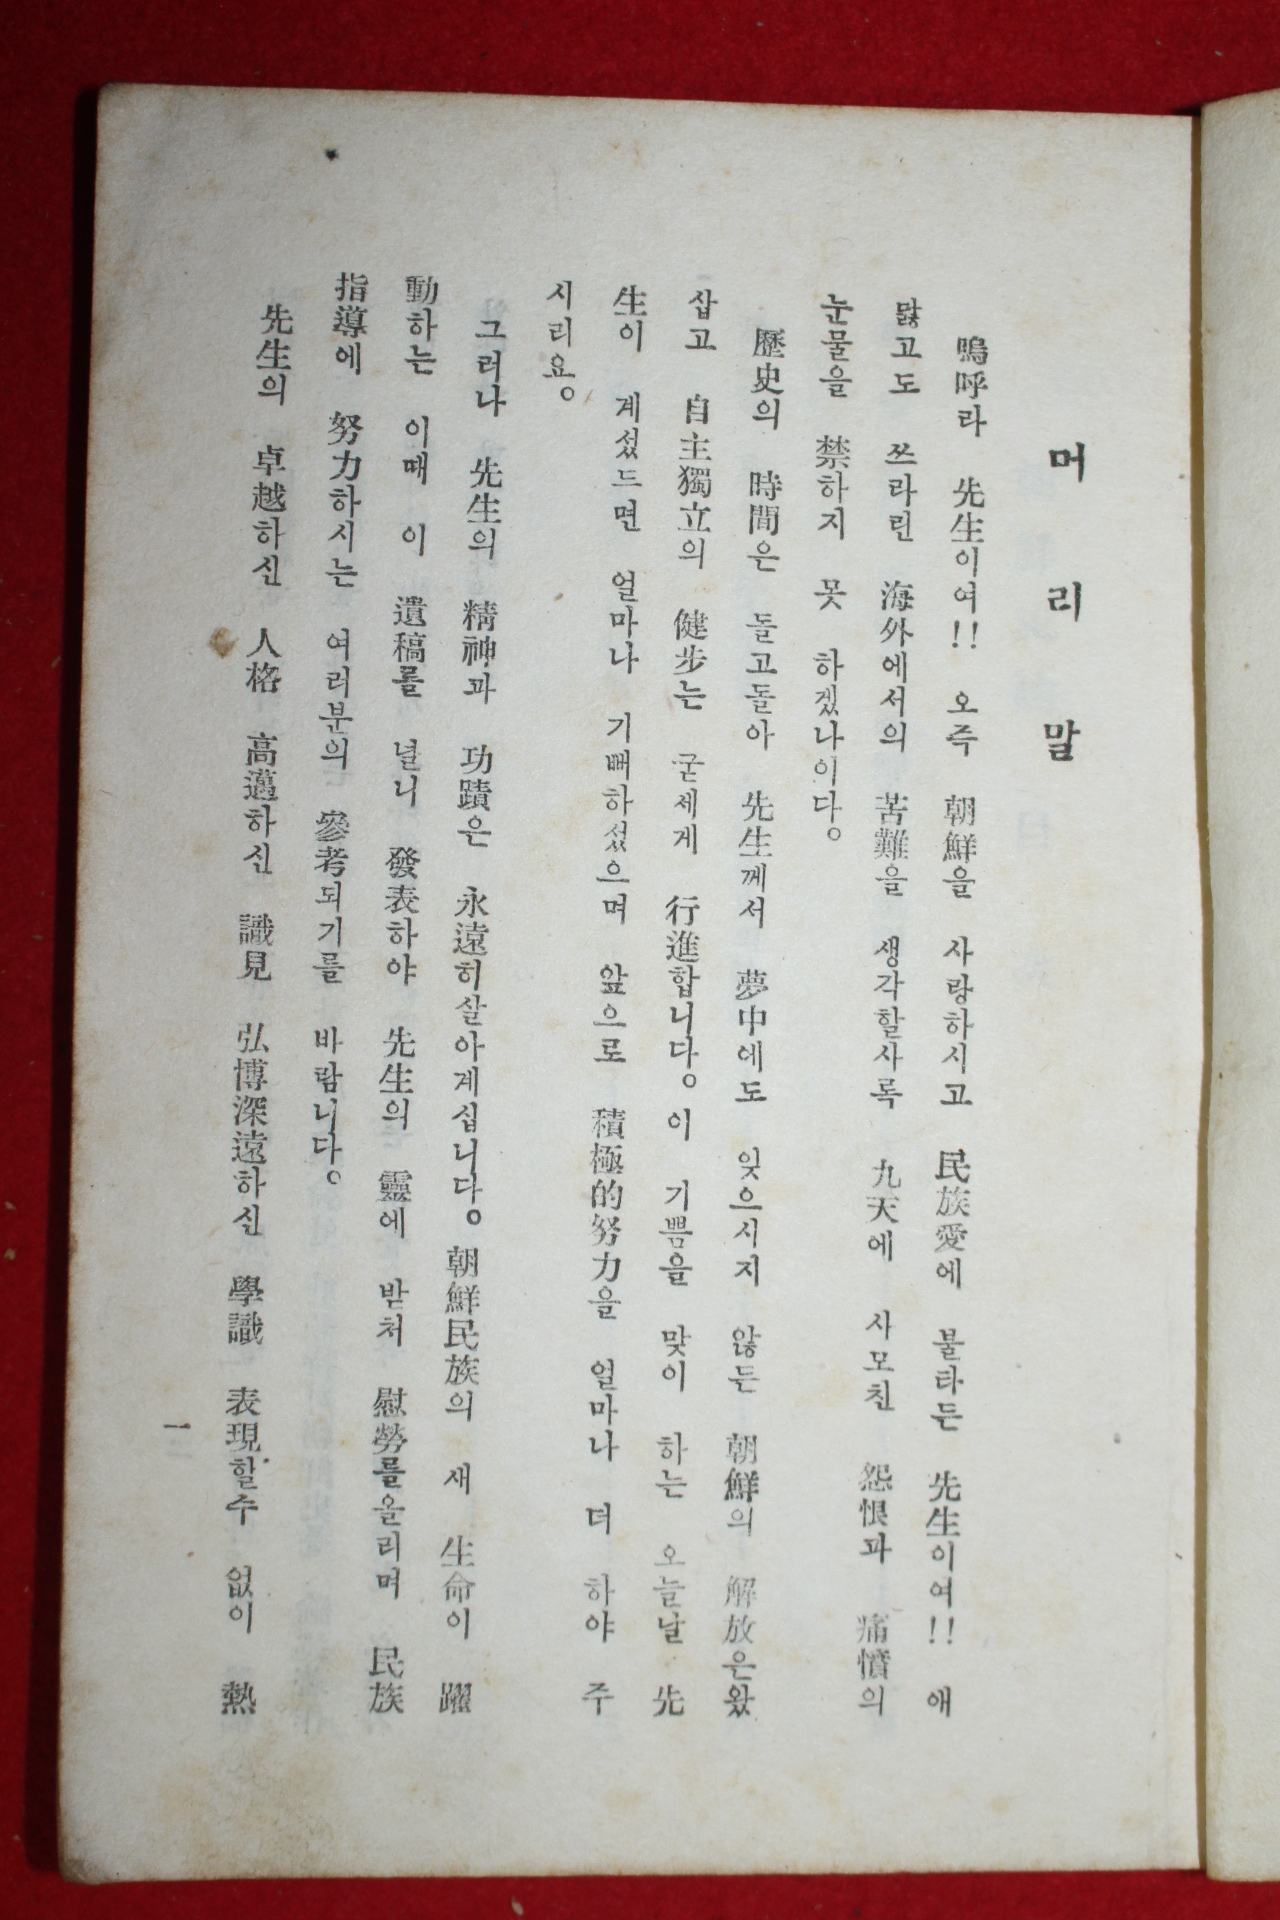 머리말
嗚呼라 先生이여!! 오즉 朝鮮을 사랑하시고 民族愛에 불타든 先生이여!! 애
닳고도 쓰라린 海外에서의 苦難을 생각할사록 九天에 사모친 怨恨과 痛憤의
눈물을 禁하지 못 하겠나이다。
歷史의 時間은 돌고돌아 先生께서 夢中에도 잊으시지 않든 朝鮮의 解放은왔
삽고 自主獨立의 健步는 굳세게 行進합니다。이 기쁨을 맞이 하는 오늘날 先
生이 계섰드면 얼마나 기뻐하섰으며 앞으로 積極的努力을 얼마나 더 하야 주
시리요。
그러나 先生의 精神과 功蹟은 永遠히살아계십니다。朝鮮民族의 새 生命이 躍
動하는 이때 이 遺稿를 널니 發表하야 先生의 靈에 받처 慰勞를올리며 民族
指導에 努力하시는 여러분의 參考되기를 바람니다。
先生의 卓越하신 人格 高邁하신 識見 弘博深遠하신 學識 表現할수 없이 熱
一